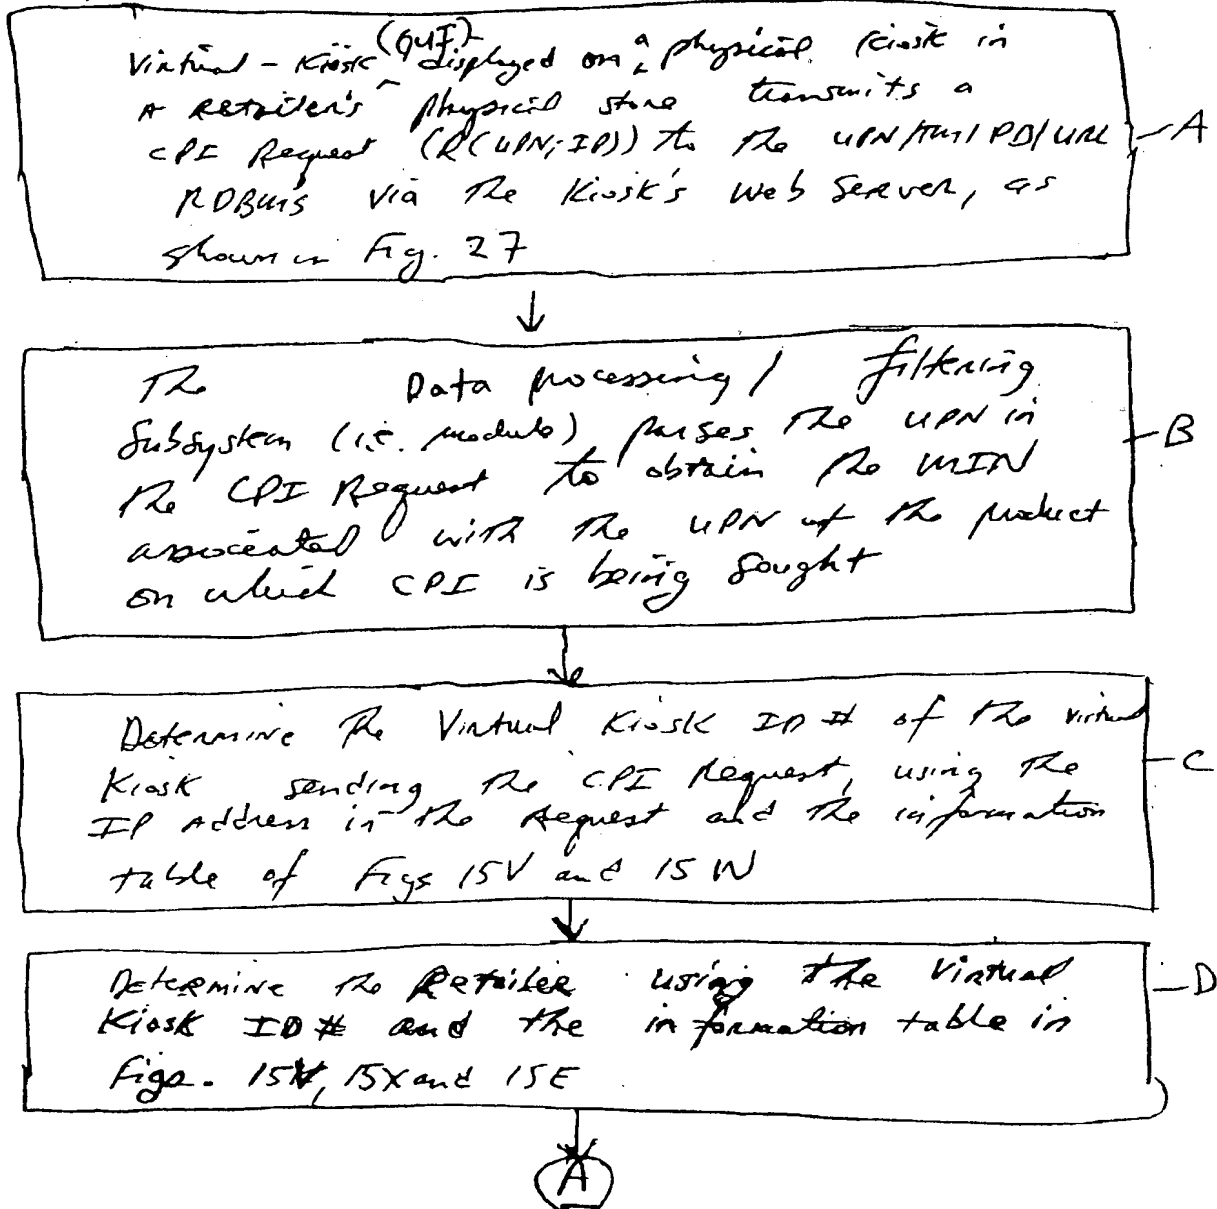 (GUI)
Virtual-Kiosk ^ displayed on ^ a physical Kiosk in
A Retailer's physical store transmits a
CPI Request (R(UPN;IP)) to the UPN/TM/PD/URL
RDBMS via the Kiosk's Web Server, as
shown in Fig. 27
A
The Data processing / filtering
Subsystem (i.e. module) parses the UPN in
the CPI Request to obtain the MIN
associated with the UPN of the product
on which CPI is being sought
B
Determine the Virtual Kiosk ID # of the virtual
Kiosk sending the CPI Request, using the
IP Address in the Request and the information
table of Figs 15V and 15W
C
Determine the Retailer using the Virtual
Kiosk ID # and the information table in
Figs. 15W, 15X and 15E
D
A